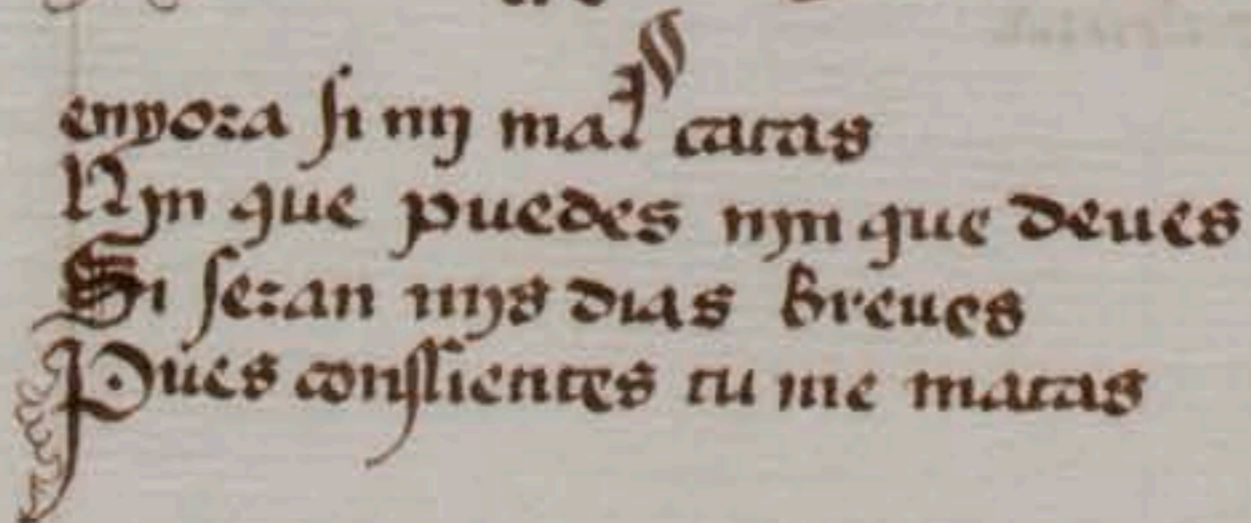 ennyora si mj mal catas
Njn que puedes njn que deues
Si seran mjs dias breues
Pues conssientes tu me matas